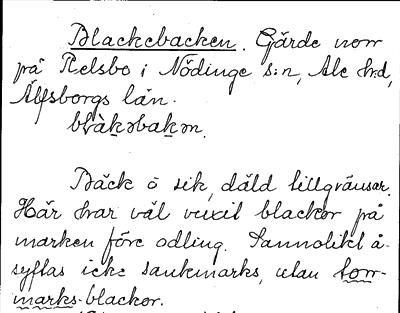 Blackebacken. Gärde norr
på Relsbo i Nödinge s:n, Ale h:d,
Älfsborgs län.
blàkəbakən.
Bäck o sik, däld tillgränsar.
Här har väl vuxit blackor på
marken före odling. Sannolikt å-
syftas icke sankmarks, utan torr-
marks-blackor.